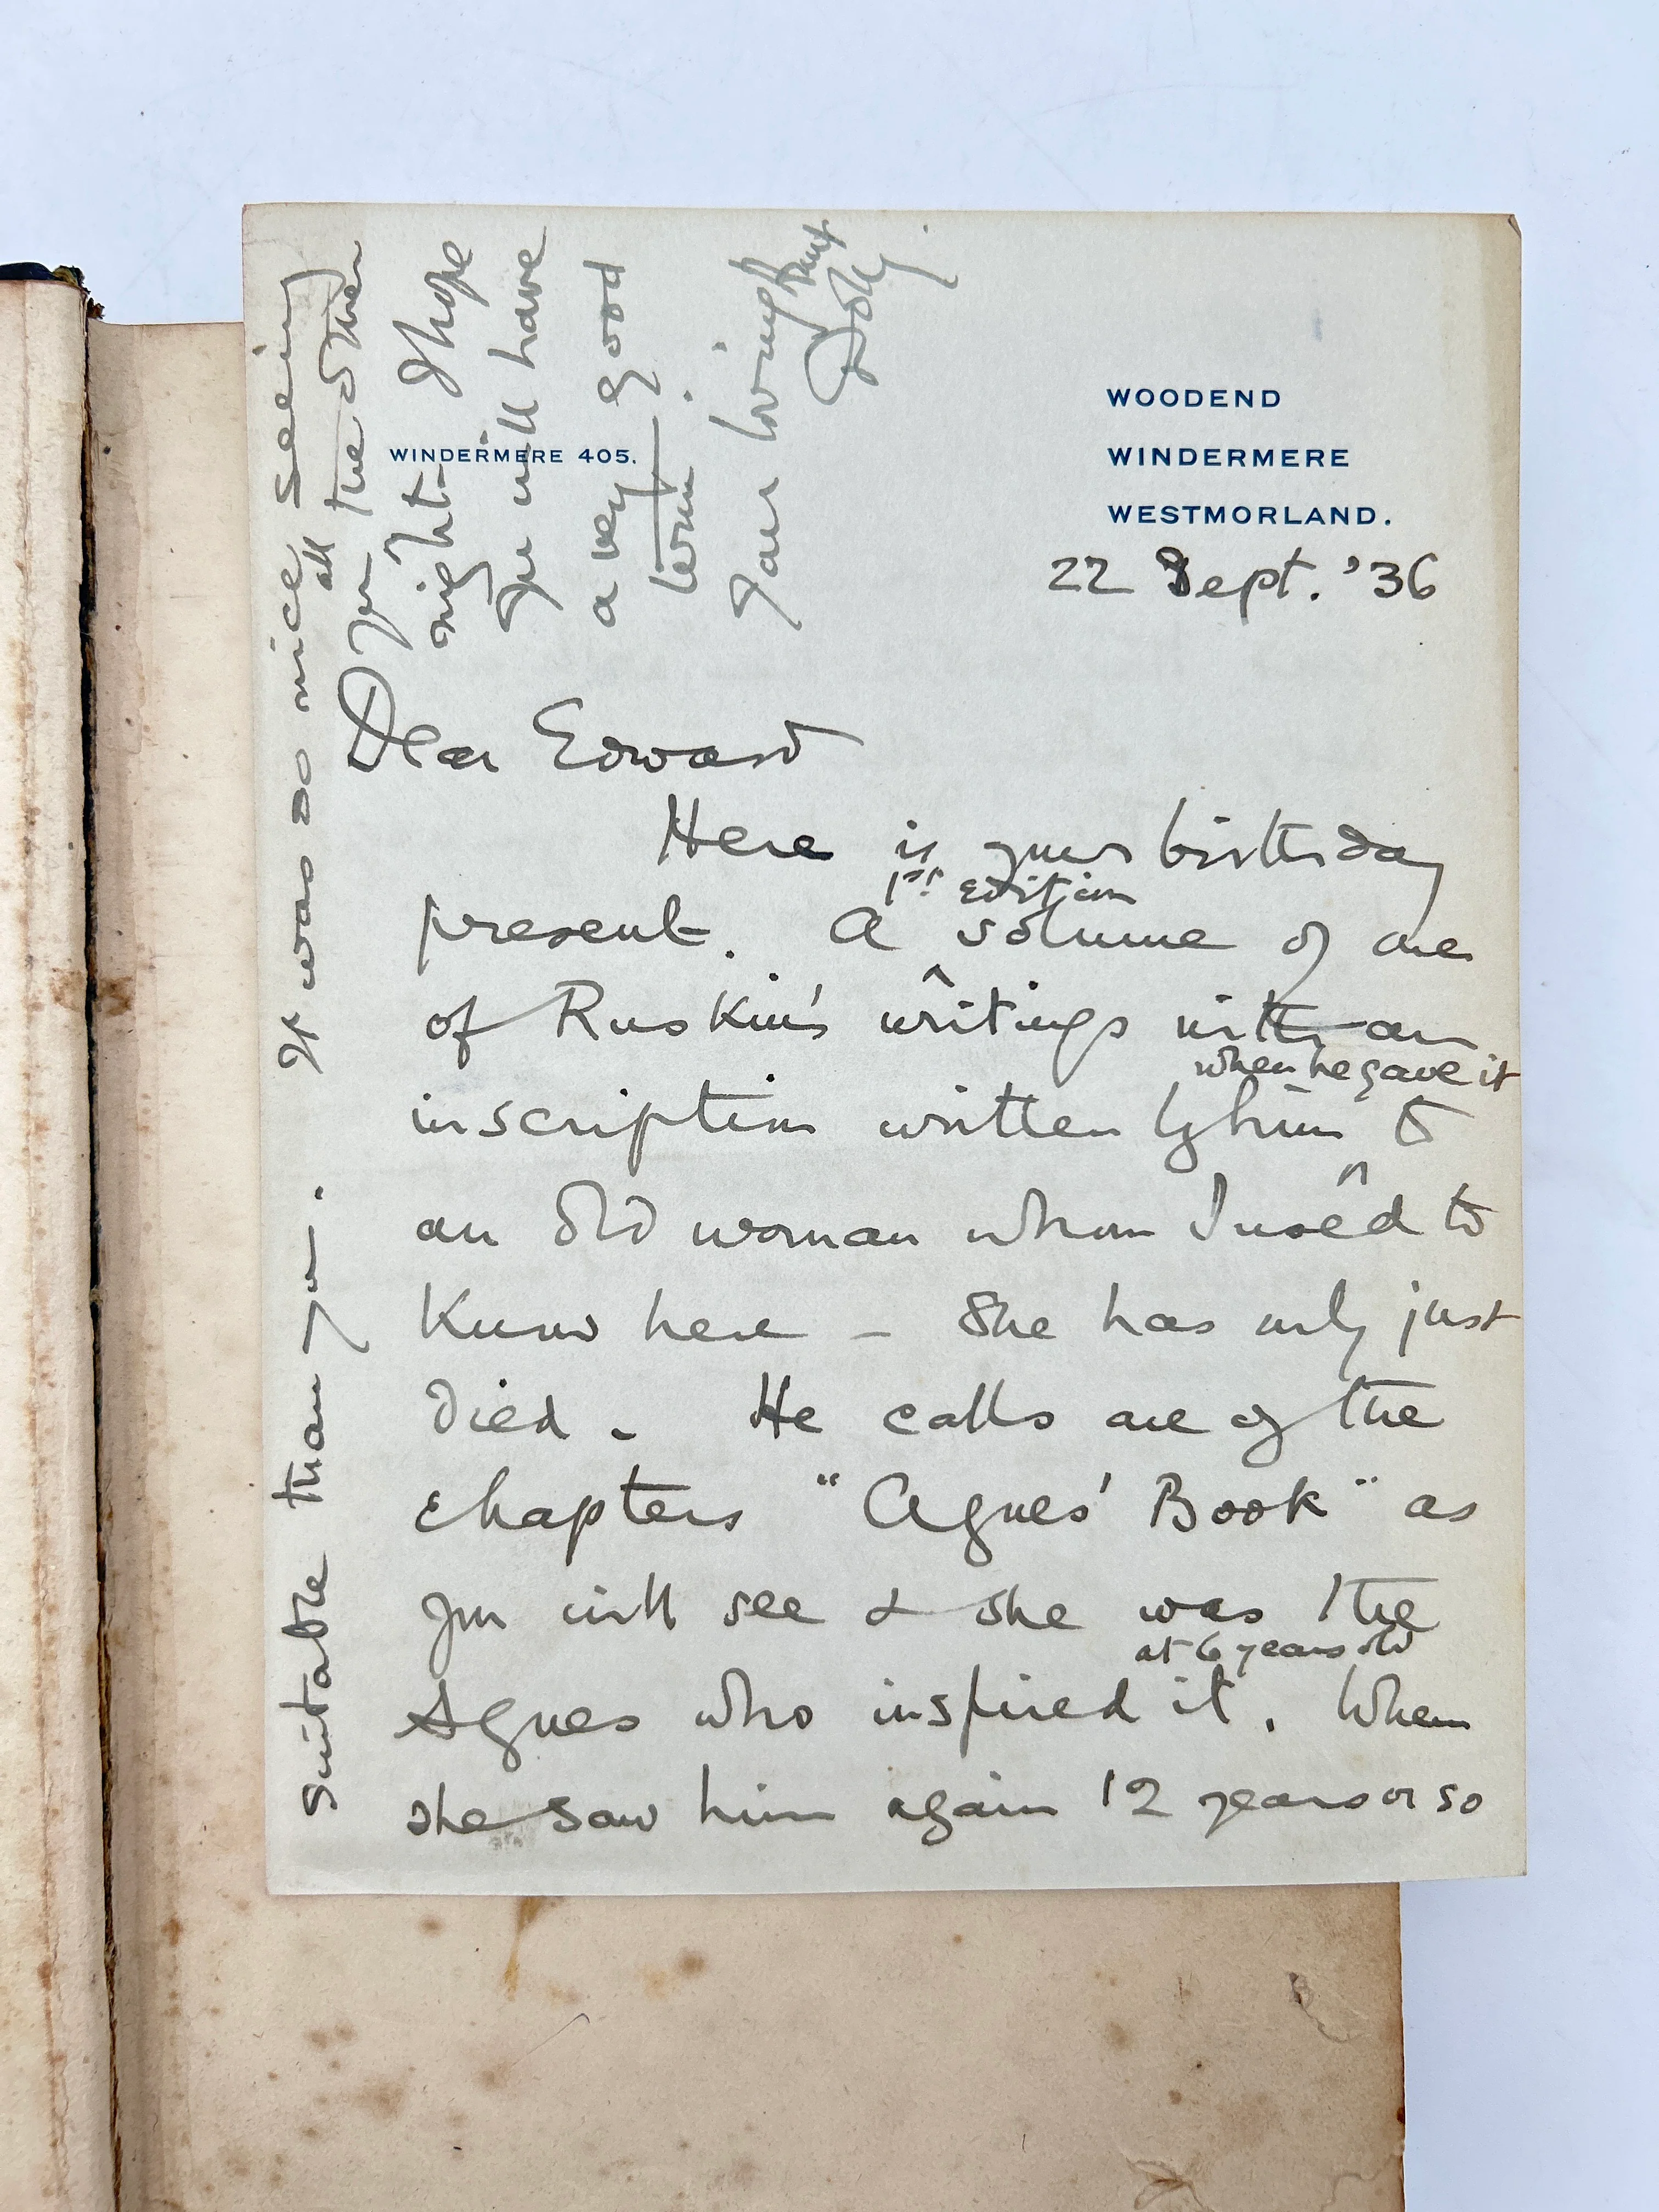 WINDERMERE 405.
WOODEND
WINDERMERE
WESTMORLAND.
22 Sept. '36
Dear Edward
Here is your birthday
1st edition
present. A ^ volume of one
of Ruskin's writings with an
when he gave it
inscription written by him ^ to
an old woman whom I used to
know here – She has only just
died. He calls one of the
chapters "Agnes' Book" as
you will see & she was the
at 6 years old
Agnes who inspired it. When
she saw him again 12 years or so
suitable than you. It was so nice seeing
all
you the other
night. I hope
you will have
a very good
term.
Your loving Aunt
Dolly.